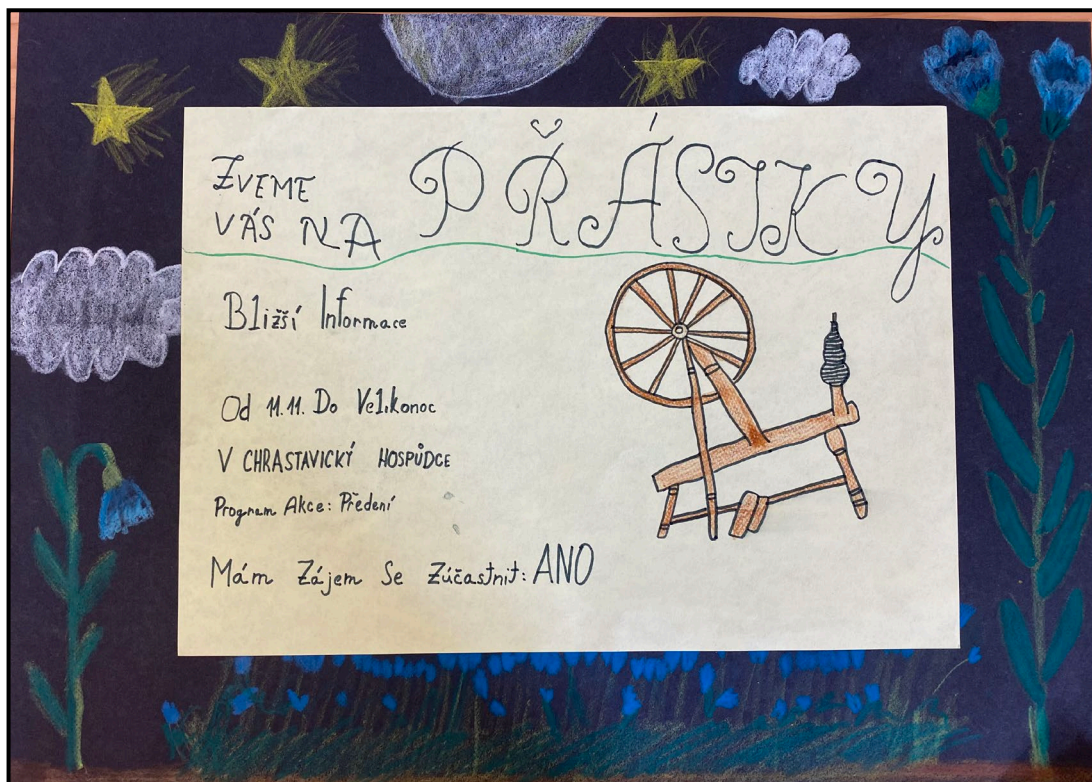 ZVEME
VÁS NA PŘÁSTKY
Bližší Informace
Od 11.11. Do Velikonoc
V CHRASTAVICKÝ HOSPŮDCE
Program Akce: Předení
Mám Zájem Se Zúčastnit: ANO